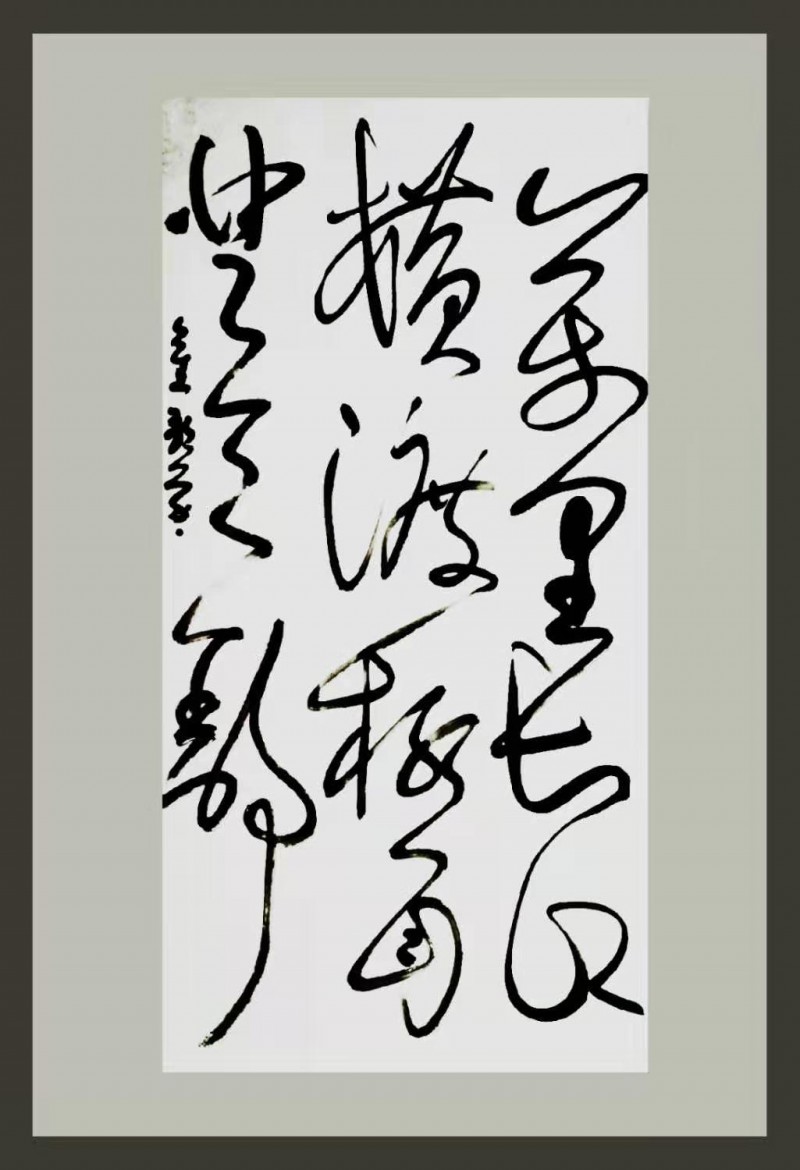 萬里长江
横渡极目
楚天舒